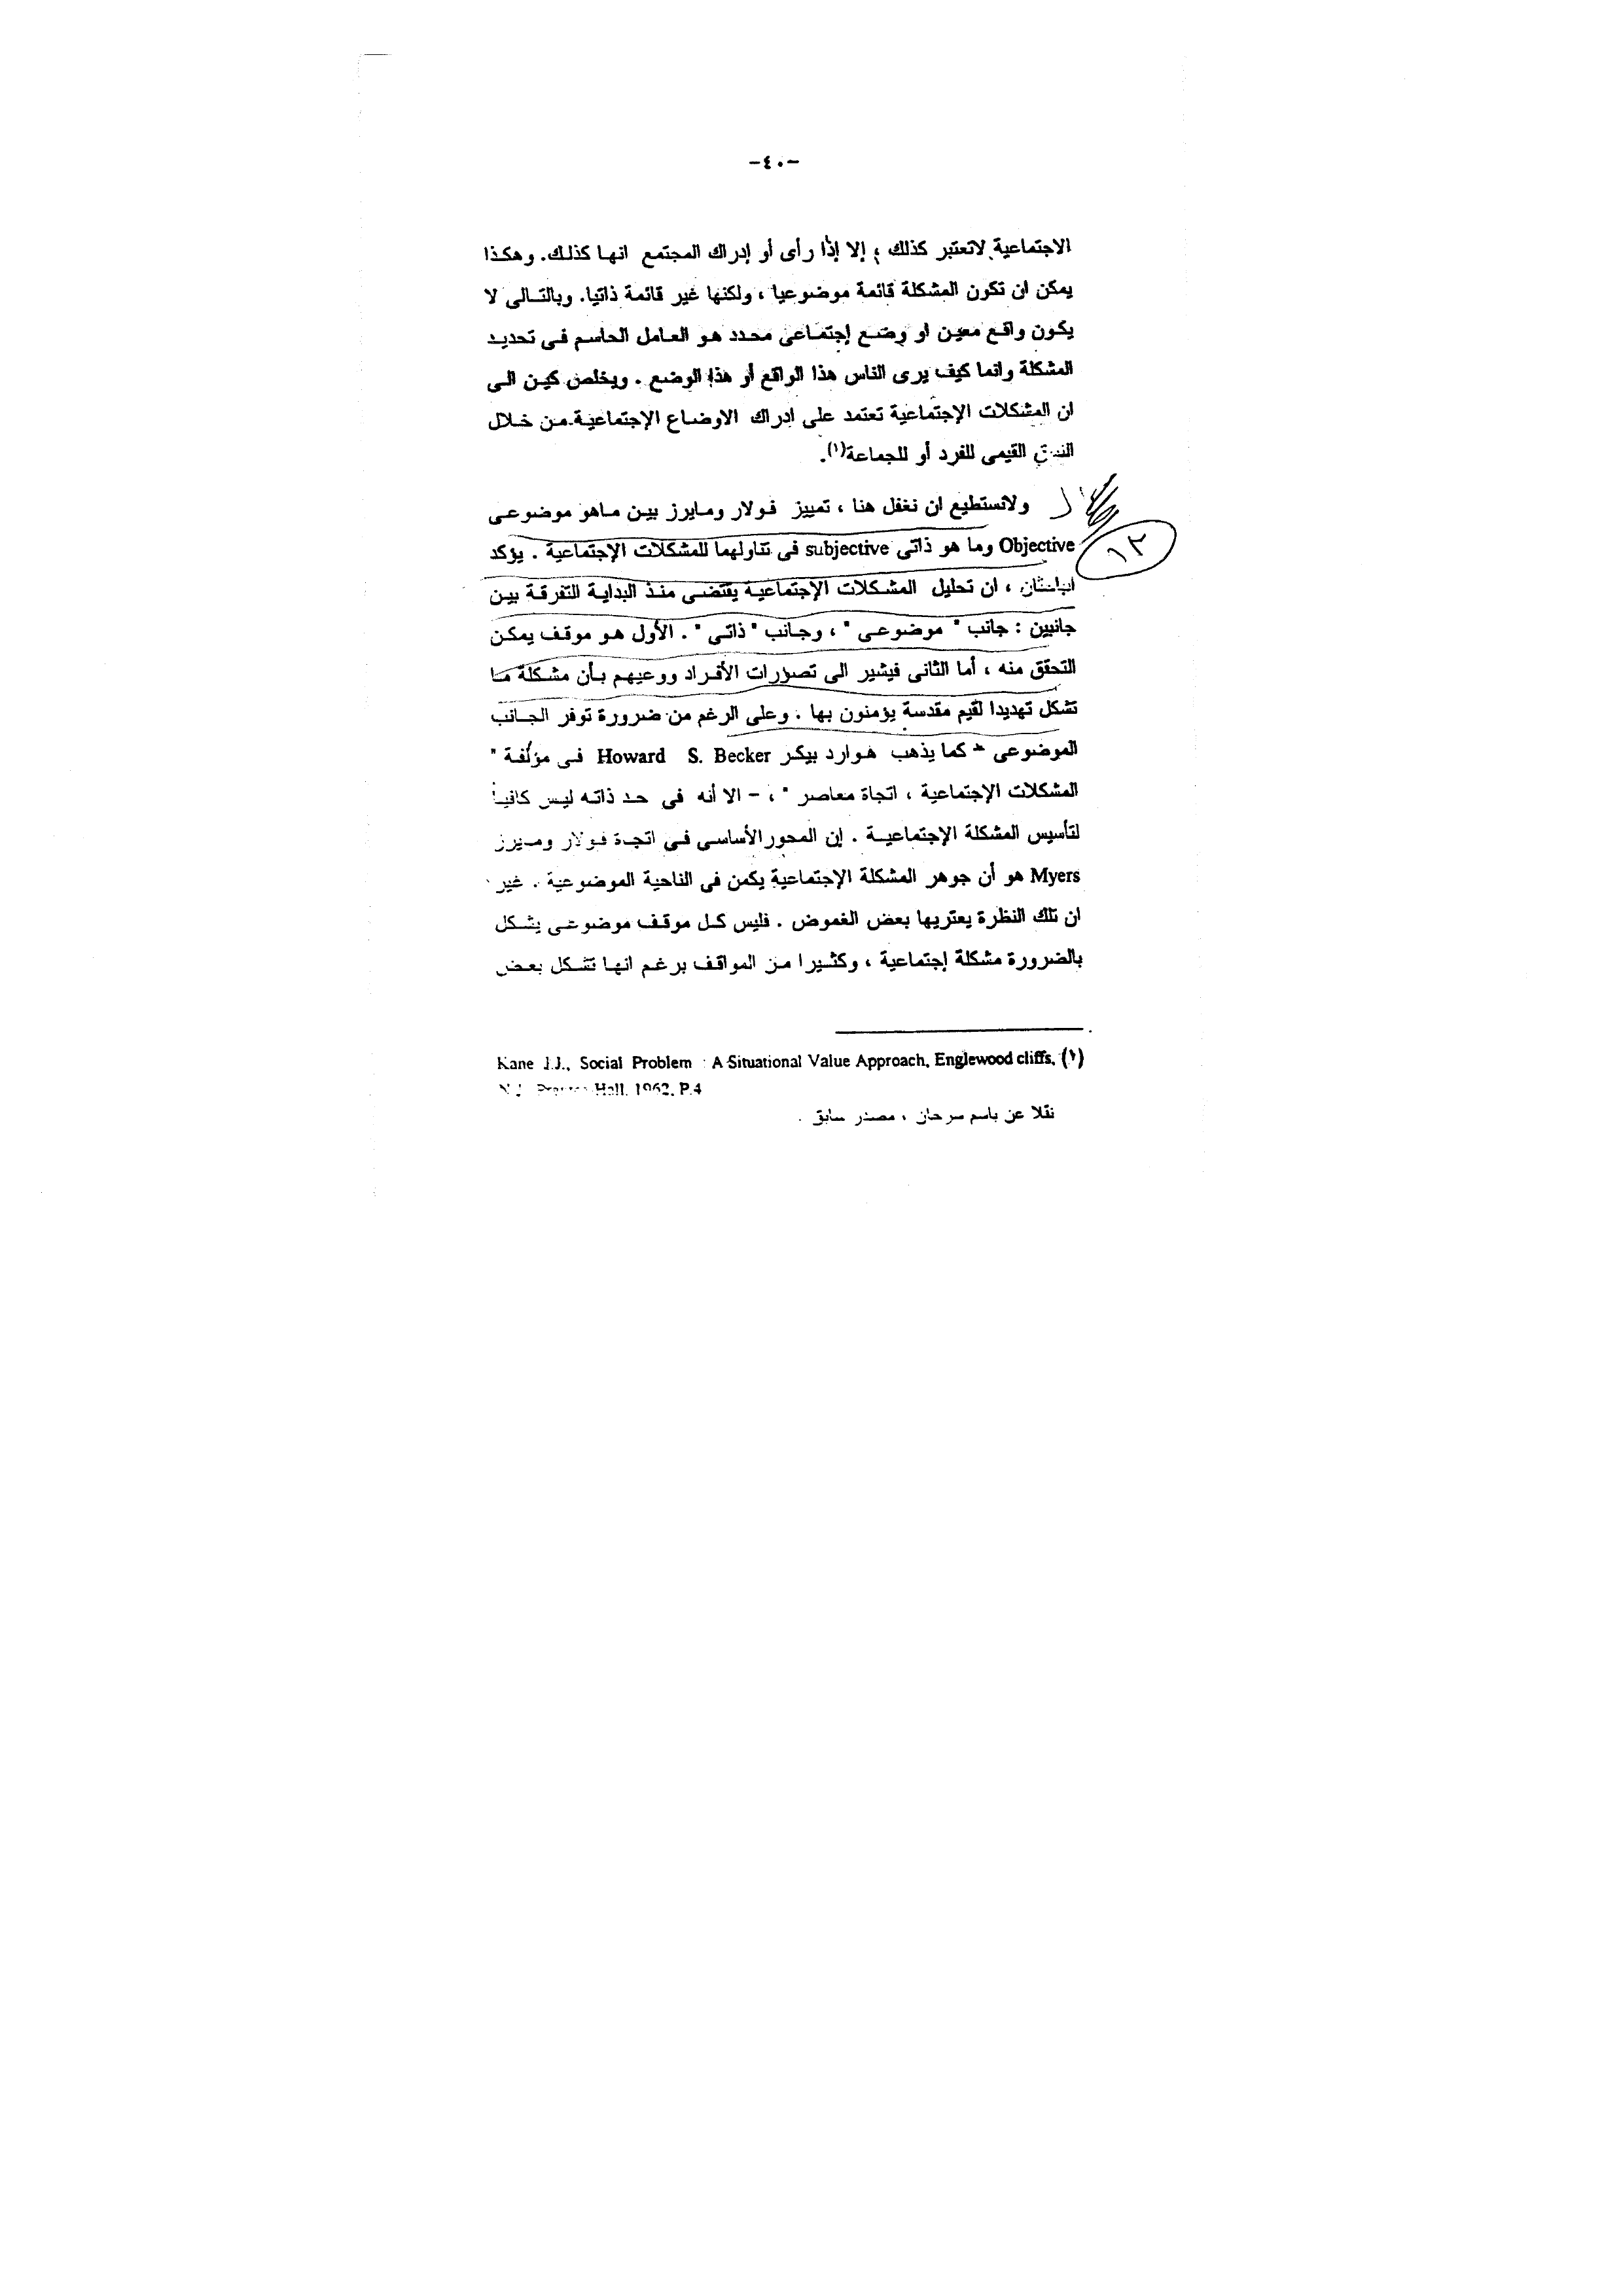 -٤٠-
الاجتماعية لاتعتبر كذلك ؛ إلا إذا رأى أو إدراك المجتمع انها كذلك. وهكذا
يمكن ان تكون المشكلة قائمة موضوعيا ، ولكنها غير قائمة ذاتيا. وبالتالى لا
يكون واقع معين او وضع إجتماعى محدد هو العامل الحاسم فى تحديد
المشكلة وانما كيف يرى الناس هذا الواقع أو هذا الوضع . ويخلص كين الى
ان المشكلات الإجتماعية تعتمد على ادراك الاوضاع الإجتماعية من خلال
النسق القيمى للفرد أو للجماعة(١).
ولانستطيع ان نغفل هنا ، تمييز فولار ومايرز بين ماهو موضوعى
Objective وما هو ذاتى subjective فى تناولهما للمشكلات الإجتماعية . يؤكد
١٣
الباحثان ، ان تحليل المشكلات الإجتماعية يقتضى منذ البداية التفرقة بين
جانبين : جانب " موضوعى " ، وجانب " ذاتى " . الأول هو موقف يمكن
التحقق منه ، أما الثانى فيشير الى تصورات الأفراد ووعيهم بأن مشكلة ما
تشكل تهديدا لقيم مقدسة يؤمنون بها . وعلى الرغم من ضرورة توفر الجانب
الموضوعى - كما يذهب هوارد بيكر Howard S. Becker فى مؤلفة "
المشكلات الإجتماعية ، اتجاة معاصر " ، - الا أنه فى حد ذاته ليس كافيا
لتأسيس المشكلة الإجتماعية . إن المحور الأساسى فى اتجاة فولار وميرز
Myers هو أن جوهر المشكلة الإجتماعية يكمن فى الناحية الموضوعية . غير
ان تلك النظرة يعتريها بعض الغموض . فليس كل موقف موضوعى يشكل
بالضرورة مشكلة إجتماعية ، وكثيرا من المواقف برغم انها تشكل بعض
Kane J.J., Social Problem : A Situational Value Approach, Englewood cliffs, (١)
N.J. Hall, 1962, P.4
نقلا عن باسم سرحان ، مصدر سابق .